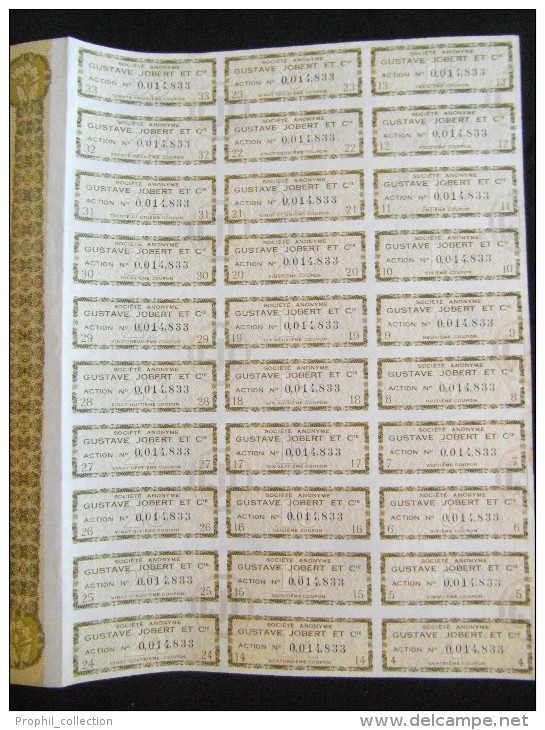 SOCIÉTÉ ANONYME
GUSTAVE JOBERT ET Cie
ACTION No 0,014,833
33 33
TRENTE-TROISIÈME COUPON
SOCIÉTÉ ANONYME
GUSTAVE JOBERT ET Cie
ACTION No 0,014,833
23 23
VINGT-TROISIÈME COUPON
SOCIÉTÉ ANONYME
GUSTAVE JOBERT ET Cie
ACTION No 0,014,833
13 13
TREIZIÈME COUPON
SOCIÉTÉ ANONYME
GUSTAVE JOBERT ET Cie
ACTION No 0,014,833
32 32
TRENTE-DEUXIÈME COUPON
SOCIÉTÉ ANONYME
GUSTAVE JOBERT ET Cie
ACTION No 0,014,833
22 22
VINGT-DEUXIÈME COUPON
SOCIÉTÉ ANONYME
GUSTAVE JOBERT ET Cie
ACTION No 0,014,833
12 12
DOUZIÈME COUPON
SOCIÉTÉ ANONYME
GUSTAVE JOBERT ET Cie
ACTION No 0,014,833
31 31
TRENTE ET UNIÈME COUPON
SOCIÉTÉ ANONYME
GUSTAVE JOBERT ET Cie
ACTION No 0,014,833
21 21
VINGT ET UNIÈME COUPON
SOCIÉTÉ ANONYME
GUSTAVE JOBERT ET Cie
ACTION No 0,014,833
11 11
ONZIÈME COUPON
SOCIÉTÉ ANONYME
GUSTAVE JOBERT ET Cie
ACTION No 0,014,833
30 30
TRENTIÈME COUPON
SOCIÉTÉ ANONYME
GUSTAVE JOBERT ET Cie
ACTION No 0,014,833
20 20
VINGTIÈME COUPON
SOCIÉTÉ ANONYME
GUSTAVE JOBERT ET Cie
ACTION No 0,014,833
10 10
DIXIÈME COUPON
SOCIÉTÉ ANONYME
GUSTAVE JOBERT ET Cie
ACTION No 0,014,833
29 29
VINGT-NEUVIÈME COUPON
SOCIÉTÉ ANONYME
GUSTAVE JOBERT ET Cie
ACTION No 0,014,833
19 19
DIX-NEUVIÈME COUPON
SOCIÉTÉ ANONYME
GUSTAVE JOBERT ET Cie
ACTION No 0,014,833
9 9
NEUVIÈME COUPON
SOCIÉTÉ ANONYME
GUSTAVE JOBERT ET Cie
ACTION No 0,014,833
28 28
VINGT-HUITIÈME COUPON
SOCIÉTÉ ANONYME
GUSTAVE JOBERT ET Cie
ACTION No 0,014,833
18 18
DIX-HUITIÈME COUPON
SOCIÉTÉ ANONYME
GUSTAVE JOBERT ET Cie
ACTION No 0,014,833
8 8
HUITIÈME COUPON
SOCIÉTÉ ANONYME
GUSTAVE JOBERT ET Cie
ACTION No 0,014,833
27 27
VINGT-SEPTIÈME COUPON
SOCIÉTÉ ANONYME
GUSTAVE JOBERT ET Cie
ACTION No 0,014,833
17 17
DIX-SEPTIÈME COUPON
SOCIÉTÉ ANONYME
GUSTAVE JOBERT ET Cie
ACTION No 0,014,833
7 7
SEPTIÈME COUPON
SOCIÉTÉ ANONYME
GUSTAVE JOBERT ET Cie
ACTION No 0,014,833
26 26
VINGT-SIXIÈME COUPON
SOCIÉTÉ ANONYME
GUSTAVE JOBERT ET Cie
ACTION No 0,014,833
16 16
SEIZIÈME COUPON
SOCIÉTÉ ANONYME
GUSTAVE JOBERT ET Cie
ACTION No 0,014,833
6 6
SIXIÈME COUPON
SOCIÉTÉ ANONYME
GUSTAVE JOBERT ET Cie
ACTION No 0,014,833
25 25
VINGT-CINQUIÈME COUPON
SOCIÉTÉ ANONYME
GUSTAVE JOBERT ET Cie
ACTION No 0,014,833
16 15
QUINZIÈME COUPON
SOCIÉTÉ ANONYME
GUSTAVE JOBERT ET Cie
ACTION No 0,014,833
5 5
CINQUIÈME COUPON
SOCIÉTÉ ANONYME
GUSTAVE JOBERT ET Cie
ACTION No 0,014,833
24 24
VINGT-QUATRIÈME COUPON
SOCIÉTÉ ANONYME
GUSTAVE JOBERT ET Cie
ACTION No 0,014,833
14 14
QUATORZIÈME COUPON
SOCIÉTÉ ANONYME
GUSTAVE JOBERT ET Cie
ACTION No 0,014,833
4 4
QUATRIÈME COUPON
Prophil_collection
delcampe.net